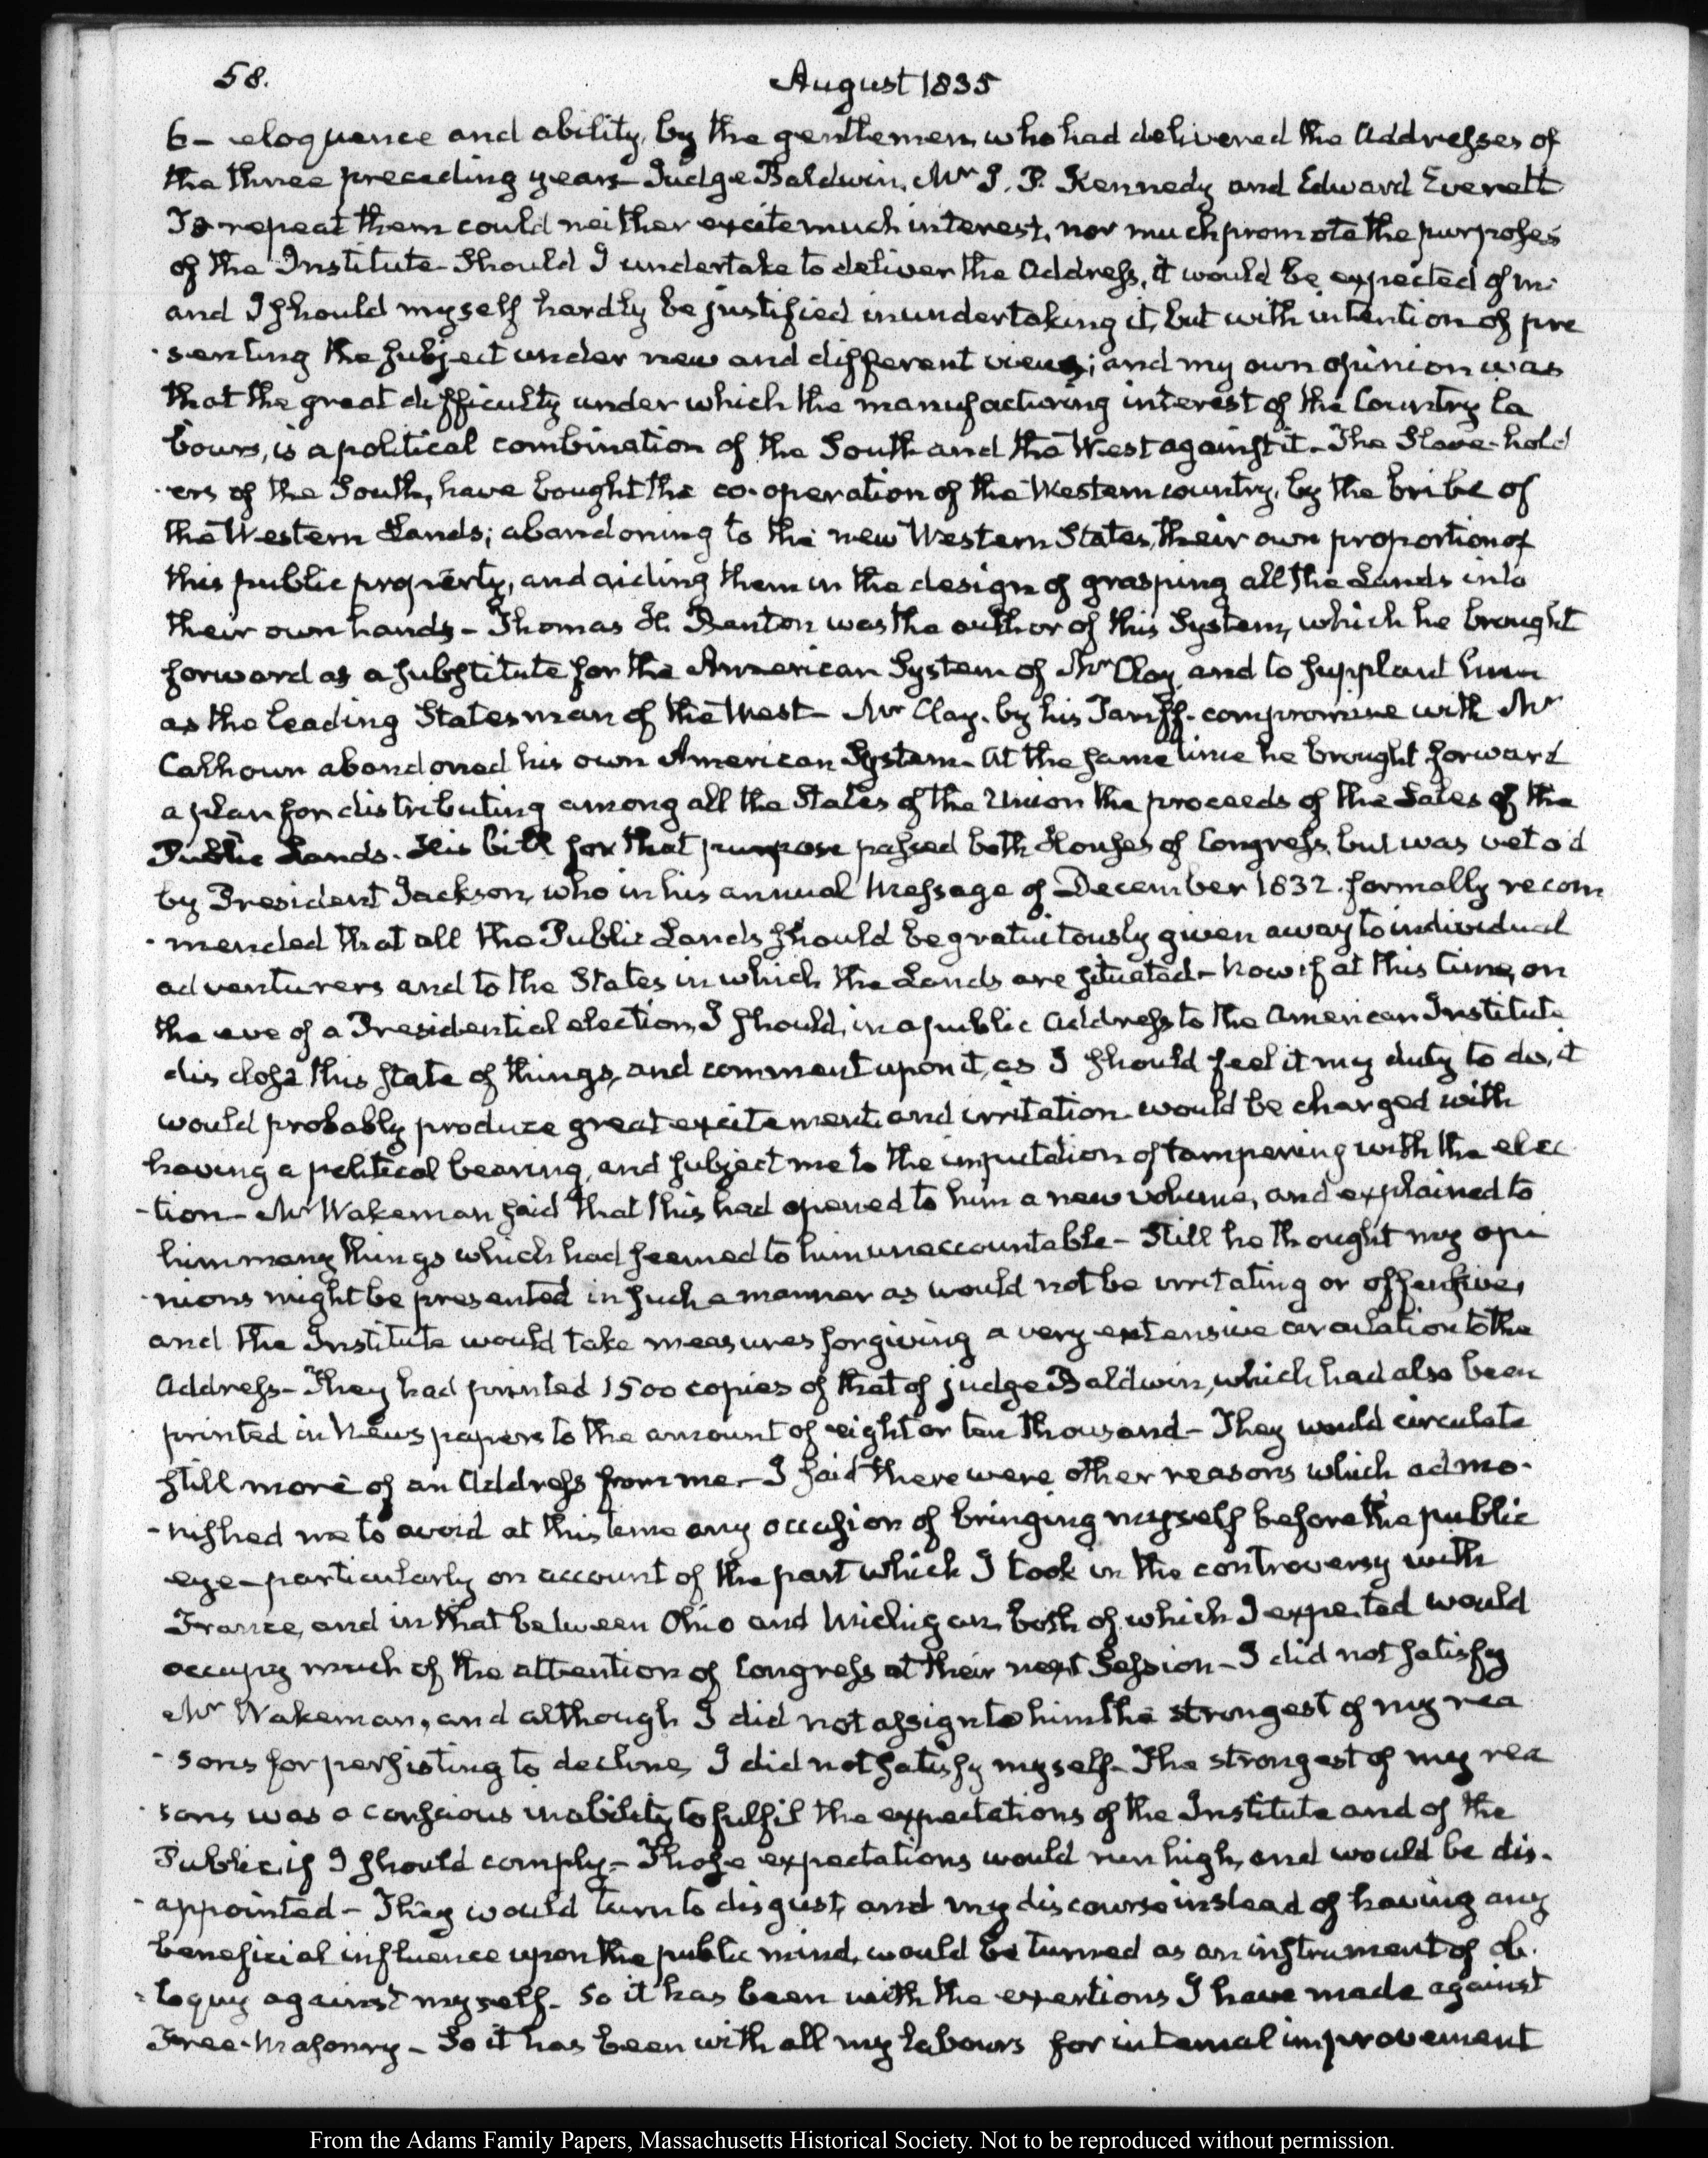 58.
August 1835
6 - eloquence and ability, by the gentlemen who had delivered the Addresses of
the three preceding years - Judge Baldwin, Mr J. P. Kennedy and Edward Everett
To repeat them could neither excite much interest, nor much promote the purposes
of the Institute - Should I undertake to deliver the Address, it would be expected of me
and I should myself hardly be justified in undertaking it, but with intention of pre
-senting the subject under new and different views; and my own opinion was
that the great difficulty under which the manufacturing interest of the Country la
bours, is a political combination of the South and the West against it - The Slave-hold
-ers of the South, have bought the co-operation of the Western country, by the bribe of
the Western Lands; abandoning to the new Western States, their own proportion of
this public property, and aiding them in the design of grasping all the Lands into
their own hands - Thomas H. Benton was the author of this System, which he brought
forward as a substitute for the American System of Mr Clay, and to supplant him
as the leading Statesman of the West - Mr Clay, by his Tariff-compromise with Mr
Calhoun abandoned his own American System - At the same time he brought forward
a plan for distributing among all the States of the Union the proceeds of the Sales of the
Public Lands. His bill for that purpose passed both Houses of Congress, but was veto'd
by President Jackson, who in his annual Message of December 1832. formally recom
-mended that all the Public Lands should be gratuitously given away to individual
adventurers and to the States in which the Lands are situated - Now if at this time, on
the eve of a Presidential election, I should, in a public Address to the American Institute
disclose this state of things, and comment upon it, as I should feel it my duty to do, it
would probably produce great excitement and irritation - would be charged with
having a political bearing, and subject me to the imputation of tampering with the elec
-tion - Mr Wakeman said that this had opened to him a new volume, and explained to
him many things which had seemed to him unaccountable - Still he thought my opi
-nions might be presented in such a manner as would not be irritating or offensive,
and the Institute would take measures for giving a very extensive circulation to the
Address - They had printed 1500 copies of that of judge Baldwin, which had also been
printed in Newspapers to the amount of eight or ten thousand - They would circulate
still more of an Address from me - I said there were other reasons which admo-
-nished me to avoid at this time any occasion of bringing myself before the public
eye - particularly on account of the part which I took in the controversy with
France, and in that between Ohio and Michigan, both of which I expected would
occupy much of the attention of Congress at their next Session - I did not satisfy
Mr Wakeman, and although I did not assign to him the strongest of my rea
-sons for persisting to decline, I did not satisfy myself - The strongest of my rea
-sons was a conscious inability to fulfil the expectations of the Institute and of the
Public, if I should comply - Those expectations would run high, and would be dis-
-appointed - They would turn to disgust, and my discourse instead of having any
beneficial influence upon the public mind, would be turned as an instrument of ob-
-loquy against myself - So it has been with the exertions I have made against
Free-Masonry - So it has been with all my labours for internal improvement
From the Adams Family Papers, Massachusetts Historical Society. Not to be reproduced without permission.